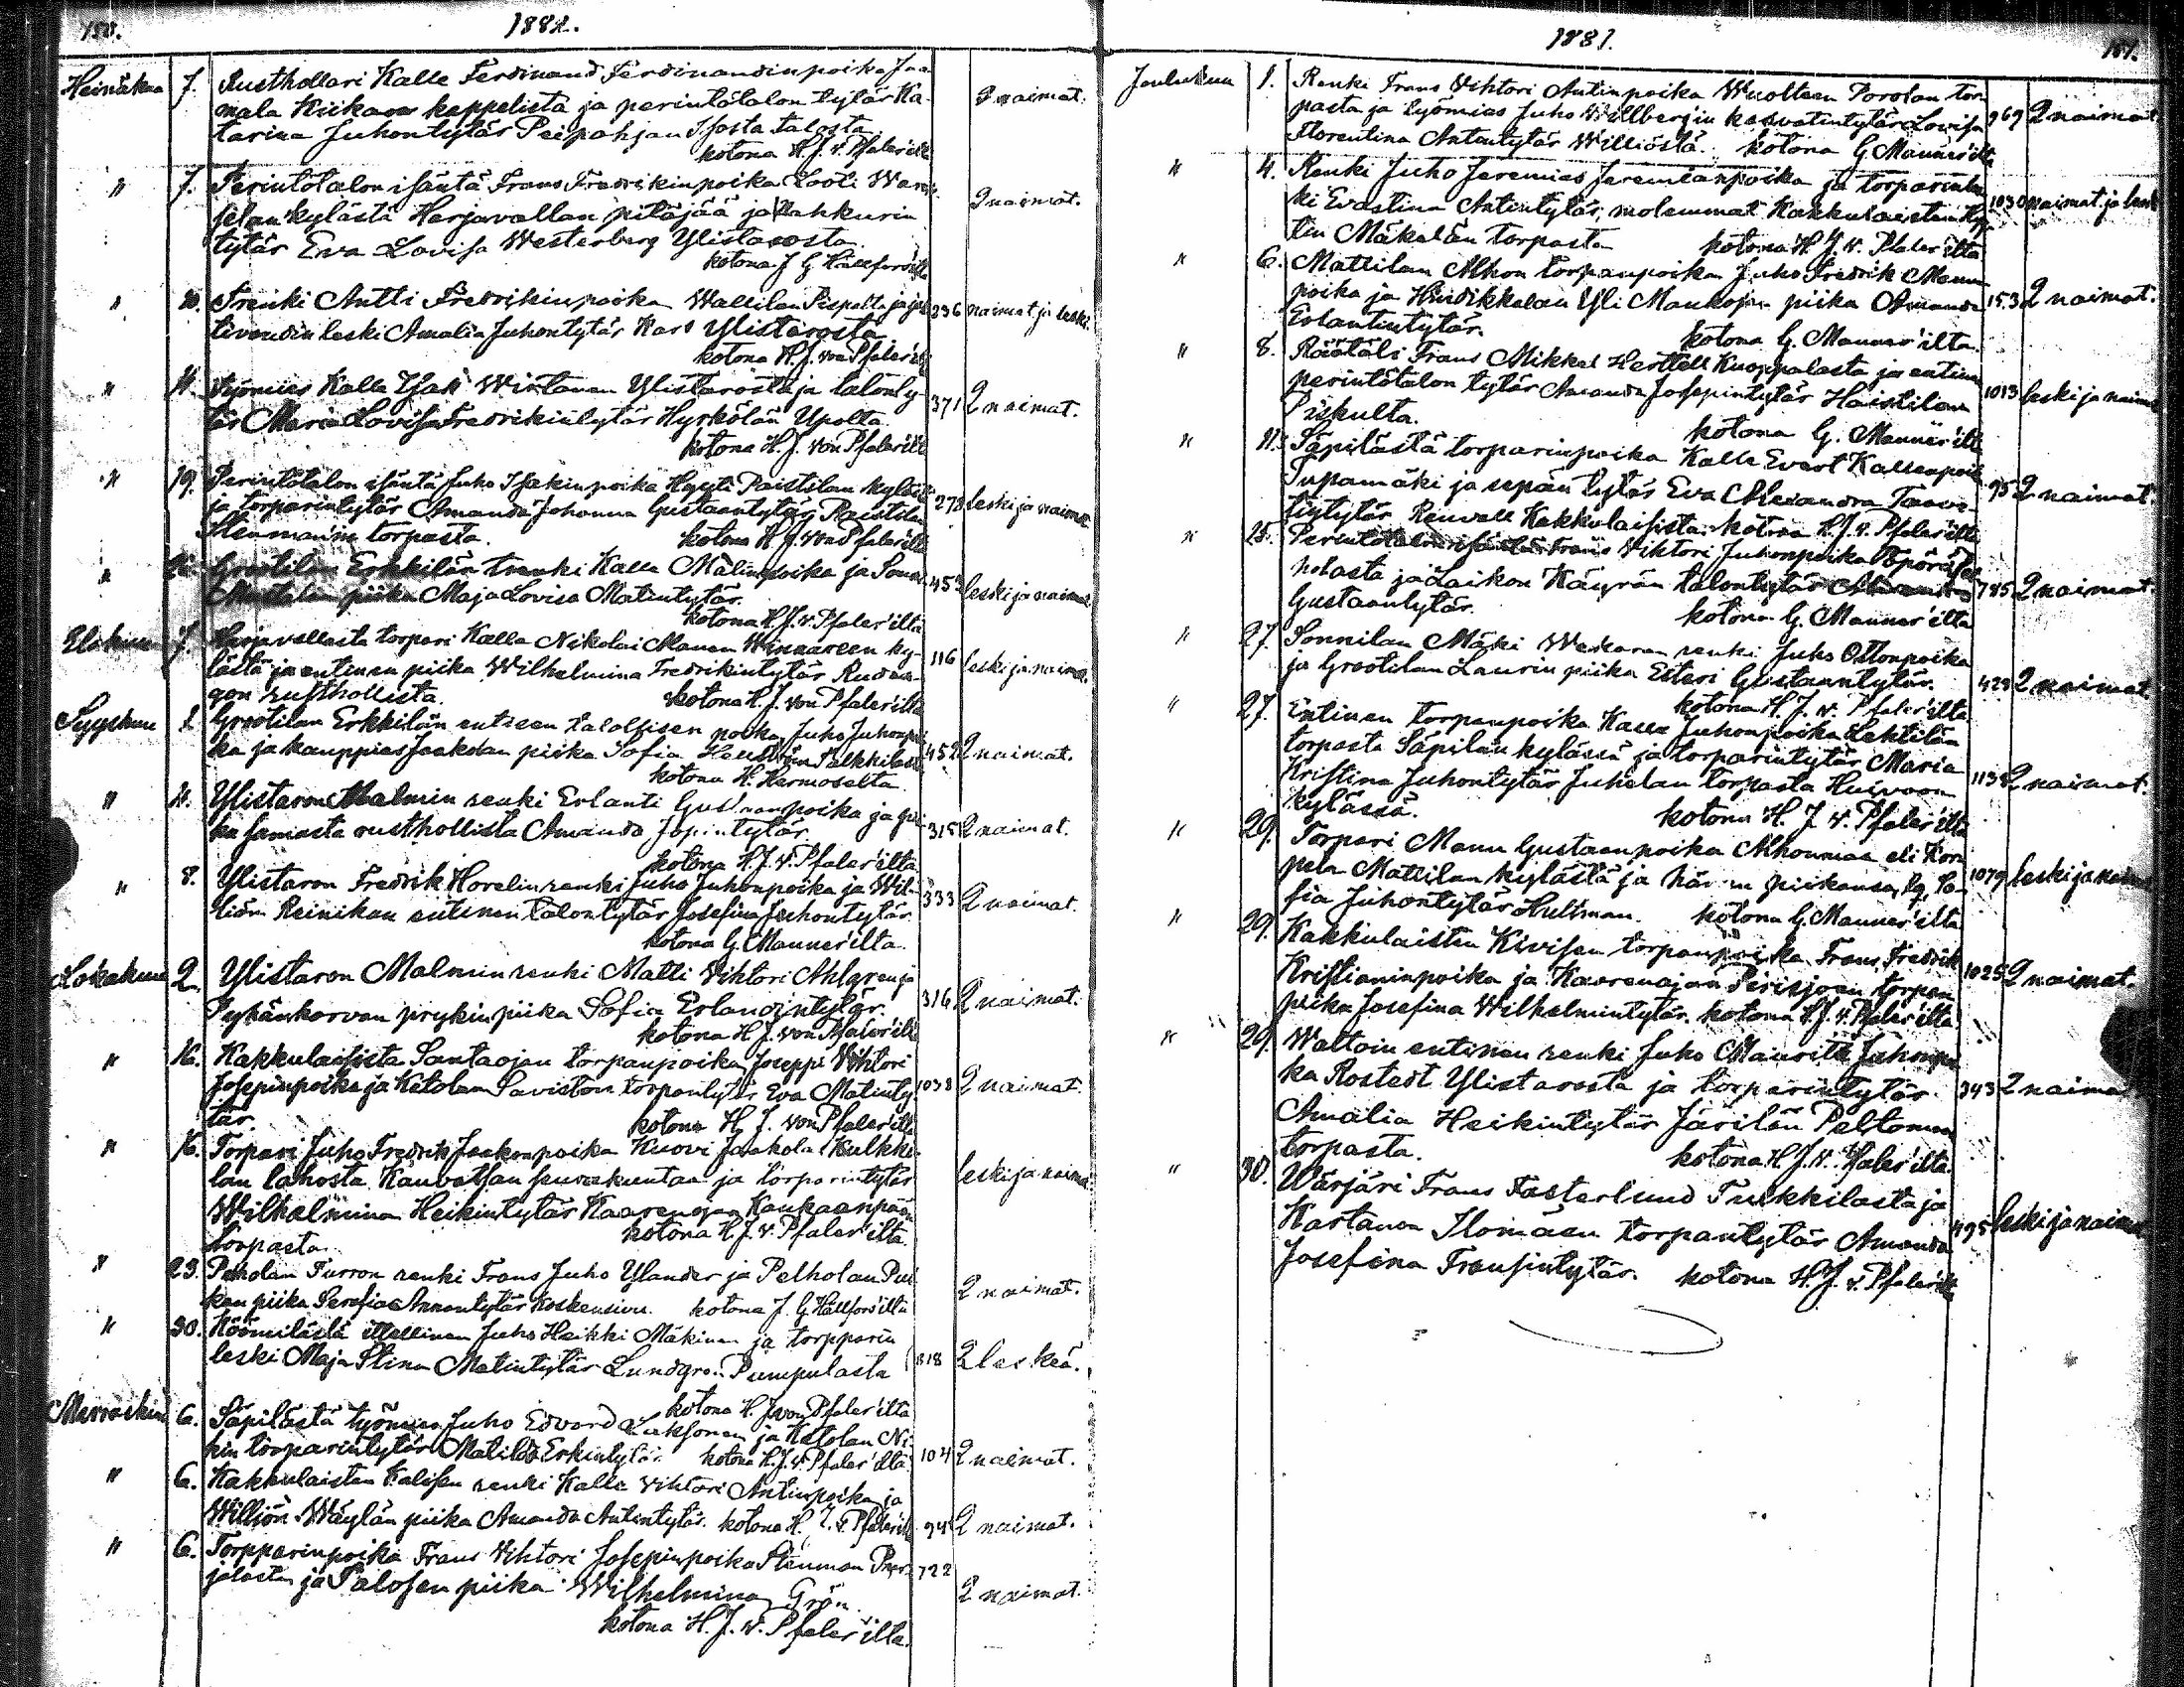 150.
1882.
Heinäkuu 7. Rusthollari Kalle Ferdinand Ferdinandinpoika Jaa-
mala Kiikan kappelista ja perintötalon tytär Ka-
tarina Juhontytär Peipohjan talosta
kotona H. J. v. Pfaler'ilta
2 naimat.
" 7. Perintötalon isäntä Frans Fredrikinpoika
kylästä Harjavallan pitäjää ja nahkurin
tytär Eva Lovisa Westerberg Ylistarosta
kotona J. G. Hällfors'ilta
2 naimat.
" 10. Trenki Antti Fredrikinpoika Wallilan ja
leski Amalia Juhontytär Ylistarosta
kotona H. J. von Pfaler'ilta
236 naimat. ja leski.
" 11. Työmies Kalle Isak Wintanen Ylistarosta ja talonty-
tär Maria Lovisa Fredrikintytär Hyrkölän Upolta
kotona H. J. von Pfaler'ilta
371 2 naimat.
" 19. Perintötalon isäntä Juho Isakinpoika Paistilan kylästä
ja torparintytär Amanda Johanna Gustaantytär Paistilan
Stenman'in torpasta. kotona H. J. von Pfaler'ilta
278 leski ja naima.
" Grootilan Erkkilän trenki Kalle Matinpoika ja
piika Maja Lovisa Matintytär.
kotona H. J. v. Pfaler'ilta
453 leski ja naima.
Elokuu 7. Harjavallasta torpari Kalle Nikolai Manen Winnareen ky-
lästä ja entinen piika Wilhelmina Fredrikintytär
rusthollista. kotona H. J. von Pfaler'ilta
116 leski ja naima.
Syyskuu 1. Grootilan Erkkilän entisen talollisen poika Juho Juhonpoi-
ka ja kauppias Jaakolan piika Sofia
kotona H. Hermoselta
452 2 naimat.
" 4. Ylistaron Malmin renki Erlanti Gustaanpoika ja pii-
ka samasta rusthollista Amanda Jopintytär
kotona H. J. v. Pfaler'ilta
315 2 naimat.
" 8. Ylistaron Fredrik Horelin renki Juho Juhonpoika ja Wil-
liön Reinikan entinen talontytär Josefina Juhontytär.
kotona G. Manner'ilta.
333 2 naimat.
Lokakuu 2. Ylistaron Malmin renki Matti Vihtori Ahlgren ja
Pyhänkorvan prykin piika Sofia Erlandintytär.
kotona H. J. von Pfaler'ilta
316 2 naimat.
" 16. Kakkulaisista Santaojan torpanpoika Joseppi Vihtori
Josepinpoika ja Katolan Saviston torparintytär Eva Matinty-
tär. kotona H. J. von Pfaler'ilta
1038 2 naimat.
" 16. Torpari Juho Fredrik Jaakonpoika Kuovi Jaakola Kulkki-
lan lahosta Kauvatsan seurakuntaa ja torparintytär
Wilhelmina Heikintytär Kaarenojan Kankaanpään
torpasta. kotona H. J. v. Pfaler'ilta
leski ja naima.
" 23. Pelholan Furron renki Frans Juho Ylander ja Pelholan
piika Serafia Annantytär Koskensivu. kotona J. G. Hällfors'ilta
2 naimat.
" 30. Köömilästä itsellinen Juho Heikki Mäkinen ja torpparin
leski Maja Stina Matintytär Lundgren Pumpulasta
kotona H. J. von Pfaler'ilta
818 2 leskeä.
Marraskuu 6. Säpilästä työmies Juho Edvard Laksonen ja Katolan Ni-
kin torparintytär Matilda Erkintytär. kotona H. J. v. Pfaler'ilta
104 2 naimat.
" 6. Kakkulaisten renki Kalle Vihtori Antinpoika ja
Williön Wäylän piika Amanda Antintytär. kotona H. J. v. Pfaler'ilta
94 2 naimat.
" 6. Torpparinpoika Frans Vihtori Josepinpoika Stenman
ja Palosen piika Wilhelmina Grön.
kotona H. J. v. Pfaler'ilta.
722 2 naimat.
1881.
151.
Joulukuu 1. Renki Frans Vihtori Antinpoika Wuolteen Porolan tor-
pasta ja työmies Juho Willberg'in kasvatintytär Lovisa
Florentina Antintytär Williöstä. kotona G. Manner'ilta
969 2 naimat.
" 4. Renki Juho Jeremias Jeremianpoika ja torparinles-
ki Evastina Antintytär, molemmat Kakkulaisten
Mäkelän torpasta kotona H. J. v. Pfaler'ilta
1030 naimat. ja leski
" 6. Mattilan Alhon torpanpoika Juho Fredrik Manun-
poika ja Hiirikkalan Yli Maukojan piika Amanda
Erlantintytär. kotona G. Manner'ilta.
153 2 naimat.
" 8. Räätäli Frans Mikkel Herttell Kuoppalasta ja entinen
perintötalon tytär Amanda Josepintytär Haistilan
Piikulta. kotona G. Manner'ilta
1013 leski ja naima
" 11. Säpilästä torparinpoika Kalle Evert Kallenpoika
Tupamäki ja sepän tytär Eva Alexandra Taave-
tintytär Renvall Kakkulaisista. kotona H. J. v. Pfaler'ilta
95 2 naimat.
" 25. Perintötalon isäntä Frans Vihtori Juhonpoika
ja Laikon Käyrän talontytär Amanda
Gustaantytär. kotona G. Manner'ilta
785 2 naimat.
" 27. Sonnilan Mäki Waskaran renki Juho Ottonpoika
ja Grootilan Laurin piika Esteri Gustaantytär.
kotona H. J. v. Pfaler'ilta
429 2 naimat.
" 27. Entinen torpanpoika Kalle Juhonpoika Lehtilän
torpasta Säpilän kylässä ja torparintytär Maria
Kristina Juhontytär Juhelan torpasta Huivoon
kylässä. kotona H. J. v. Pfaler'ilta
1138 2 naimat.
" 29. Torpari Manu Gustaanpoika Alhonmaa eli Kor-
pela Mattilan kylästä ja hänen piikansa, So-
fia Juhontytär Hultman. kotona G. Manner'ilta
1079 leski ja naima
" 29. Kakkulaisten Kivisen torpanpoika Frans Fredrik
Kristianinpoika ja Kaarenojan Piirisjoen torpan
piika Josefina Wilhelmintytär. kotona H. J. v. Pfaler'ilta
1025 2 naimat.
" 29. Wattoin entinen renki Juho Mauritz Juhonpoi-
ka Rostedt Ylistarosta ja torparintytär
Amalia Heikintytär Järilän Peltomaan
torpasta. kotona H. J. v. Pfaler'ilta.
343 2 naima
" 30. Wärjäri Frans Fasterlund Tulkkilasta ja
Kartanon Ilomäen torpantytär Amanda
Josefina Fransintytär. kotona H. J. v. Pfaler'ilta
495 leski ja naima